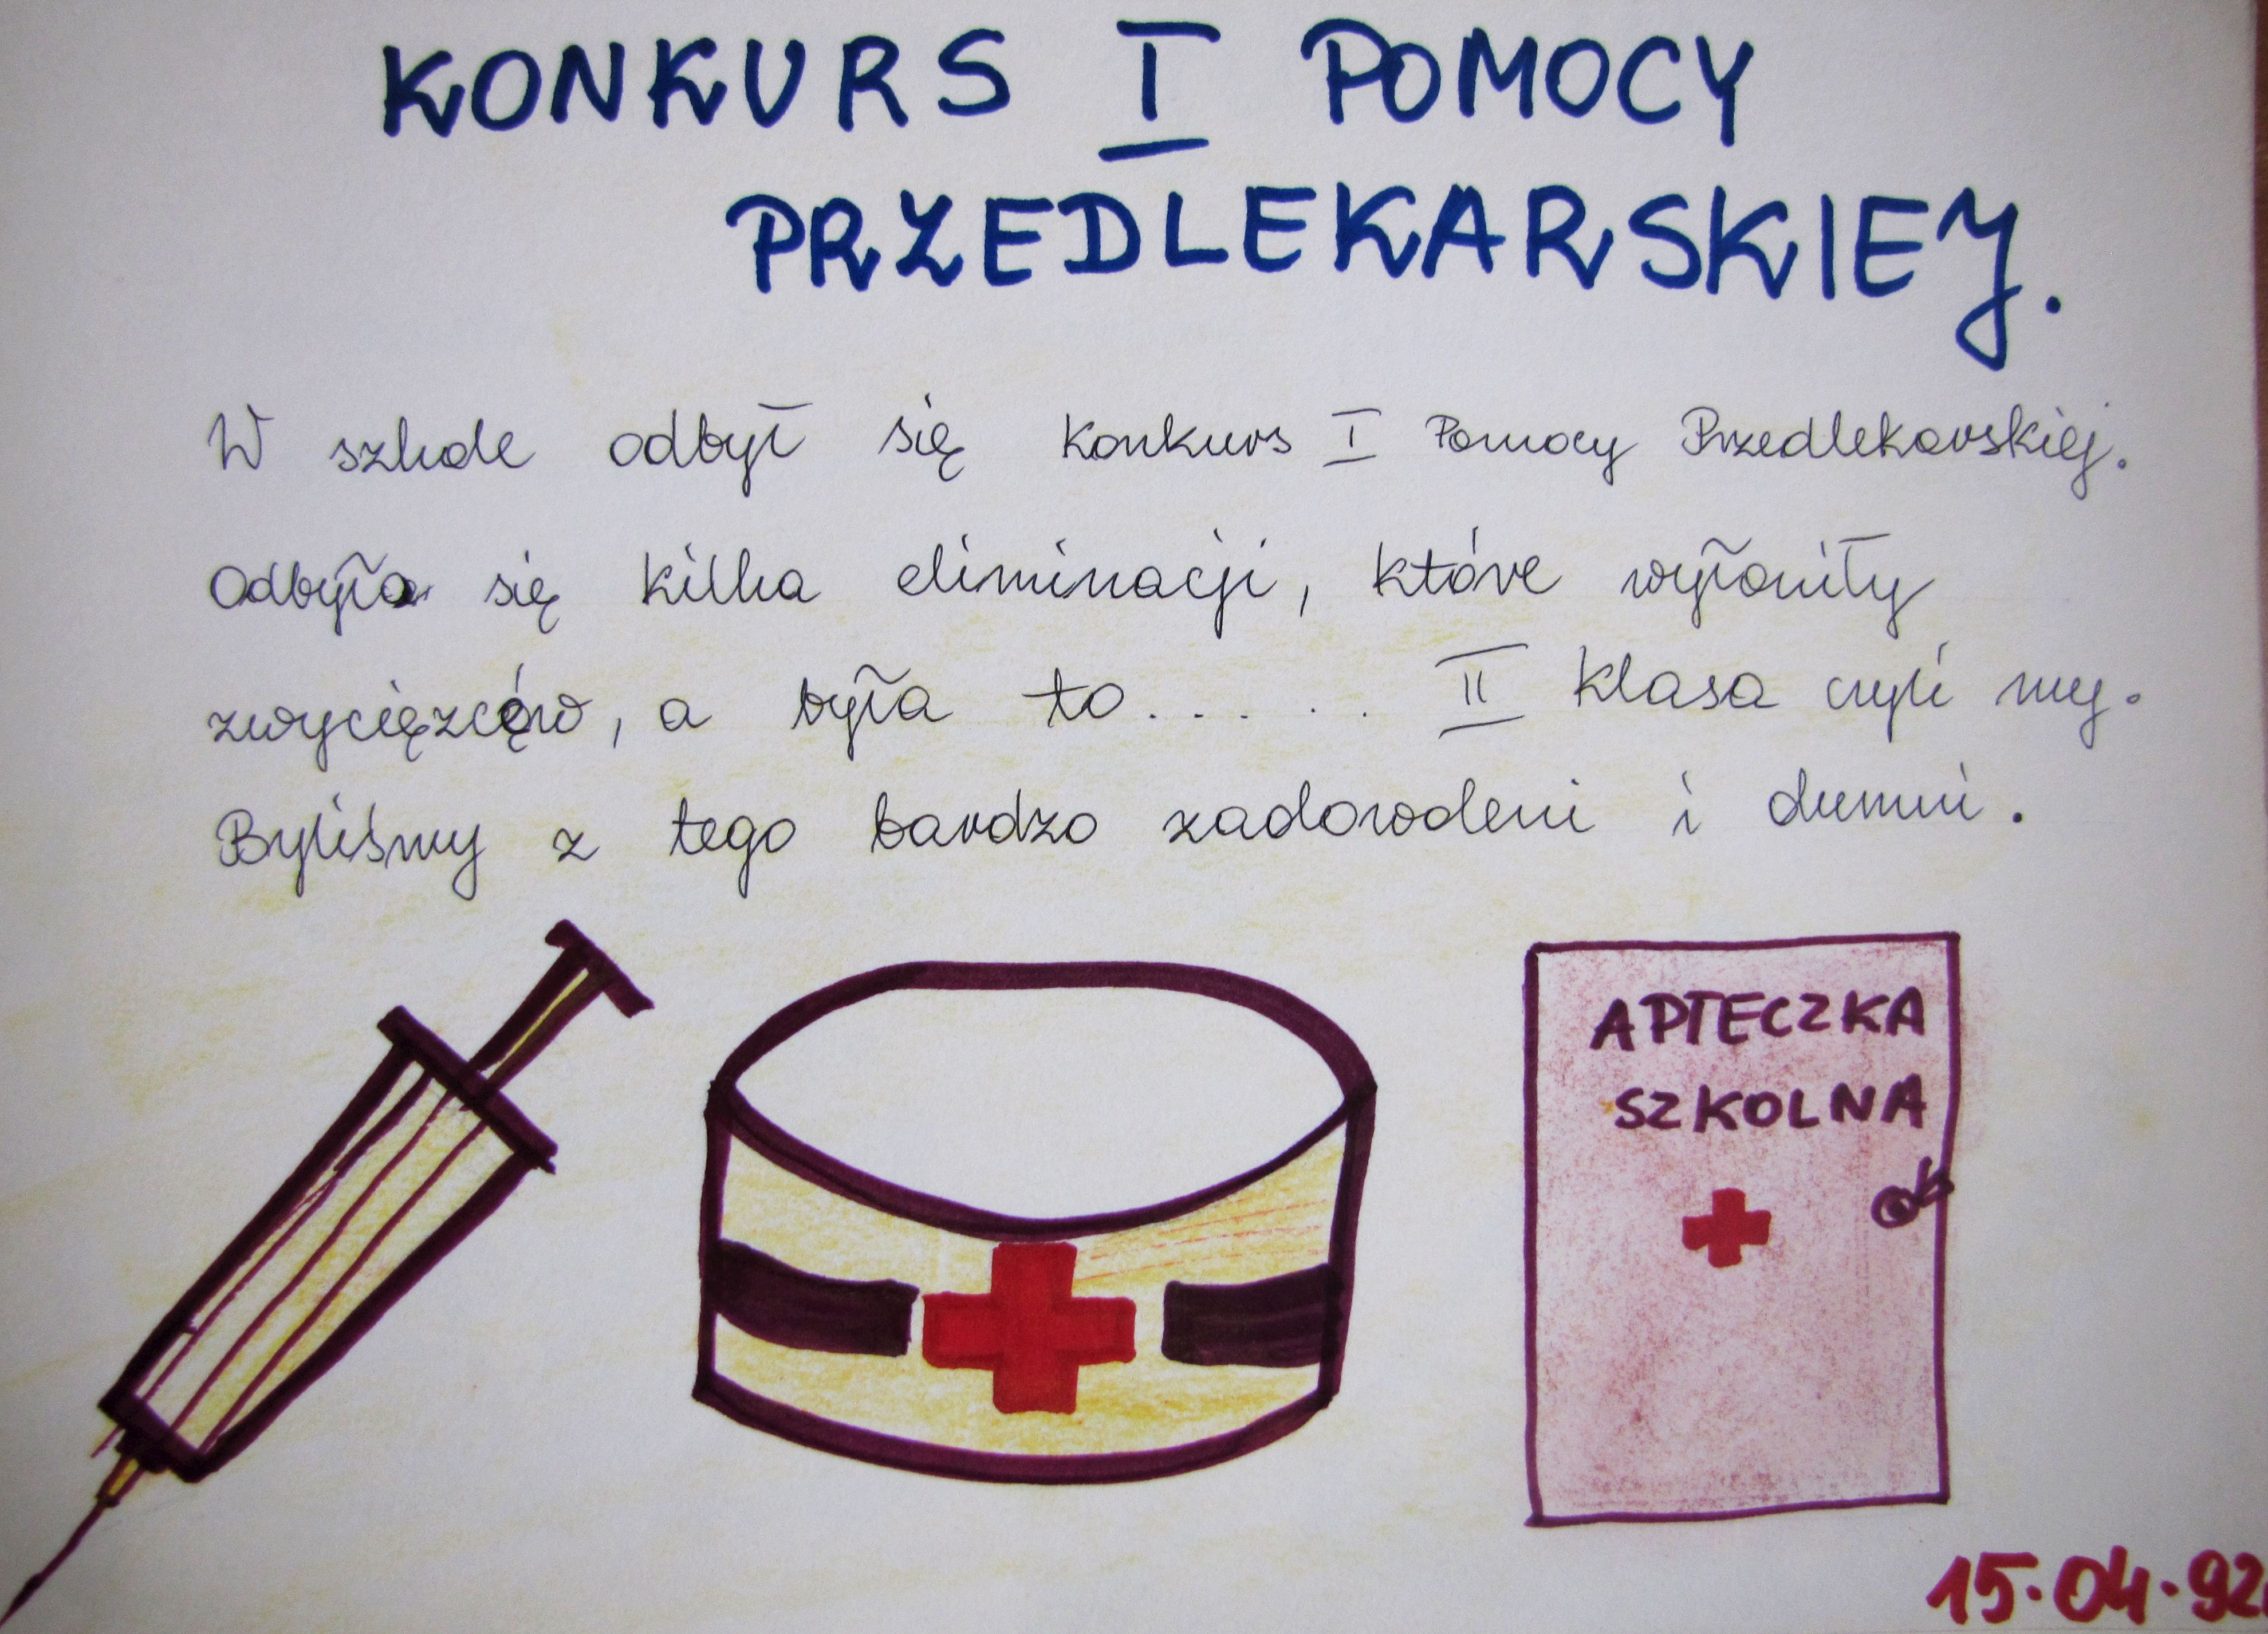 KONKURS I POMOCY
PRZEDLEKARSKIEJ.
W szkole odbył się Konkurs I Pomocy Przedlekarskiej.
Odbyła się kilka eliminacji, które wyłoniły
zwycięzców, a była to..... II klasa czyli my.
Byliśmy z tego bardzo zadowoleni i dumni.
APTECZKA
SZKOLNA
15.04.92